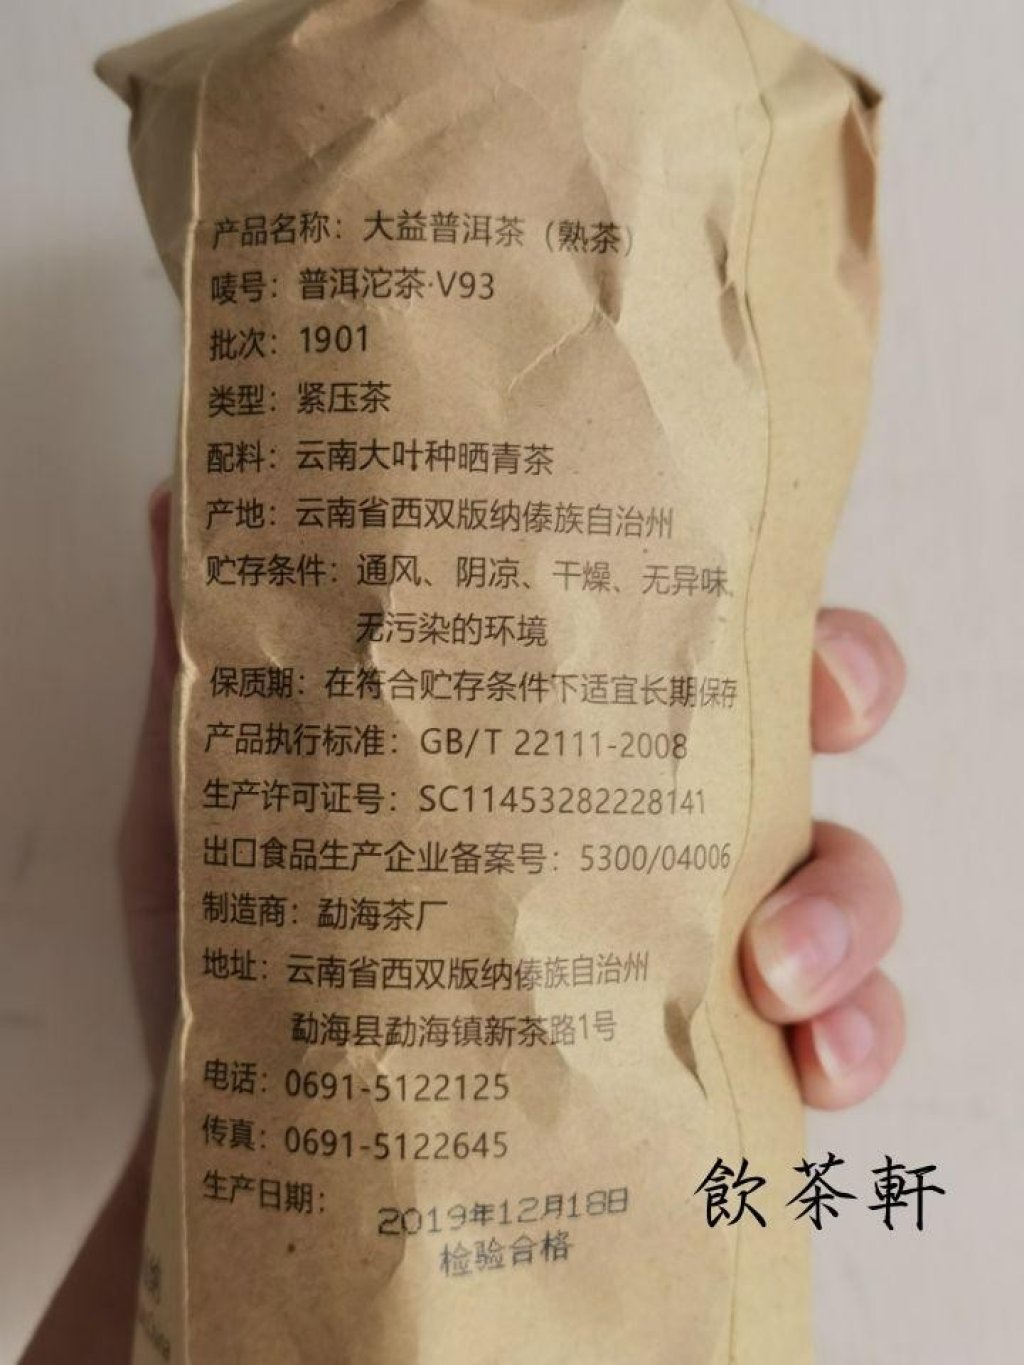 产品名称：大益普洱茶（熟茶）
唛号：普洱沱茶·V93
批次：1901
类型：紧压茶
配料：云南大叶种晒青茶
产地：云南省西双版纳傣族自治州
贮存条件：通风、阴凉、干燥、无异味、
无污染的环境
保质期：在符合贮存条件下适宜长期保存
产品执行标准：GB/T 22111-2008
生产许可证号：SC11453282228141
出口食品生产企业备案号：5300/04006
制造商：勐海茶厂
地址：云南省西双版纳傣族自治州
勐海县勐海镇新茶路1号
电话：0691-5122125
传真：0691-5122645
生产日期：2019年12月18日
检验合格
飲茶軒